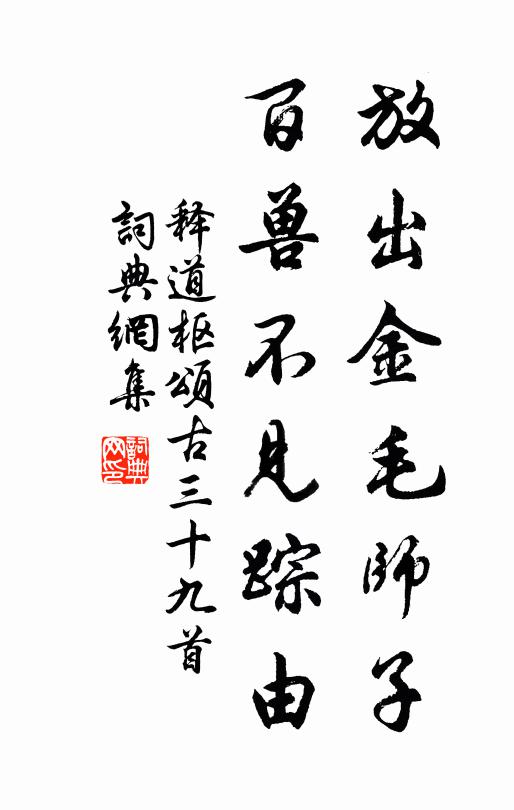 放出金毛師子
百兽不見踪由
释道枢頌古三十九首
詞典網集
詞典网印